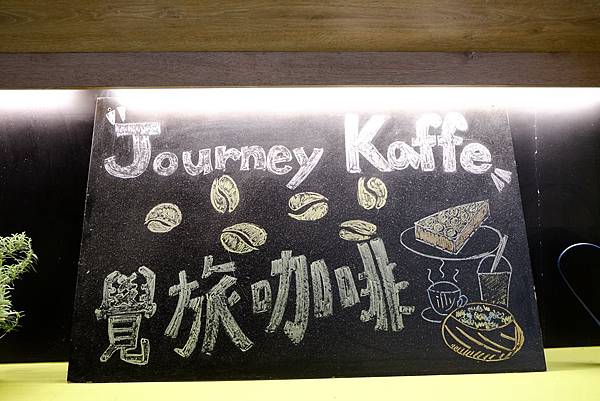 Journey Kaffe
覺旅咖啡
illy